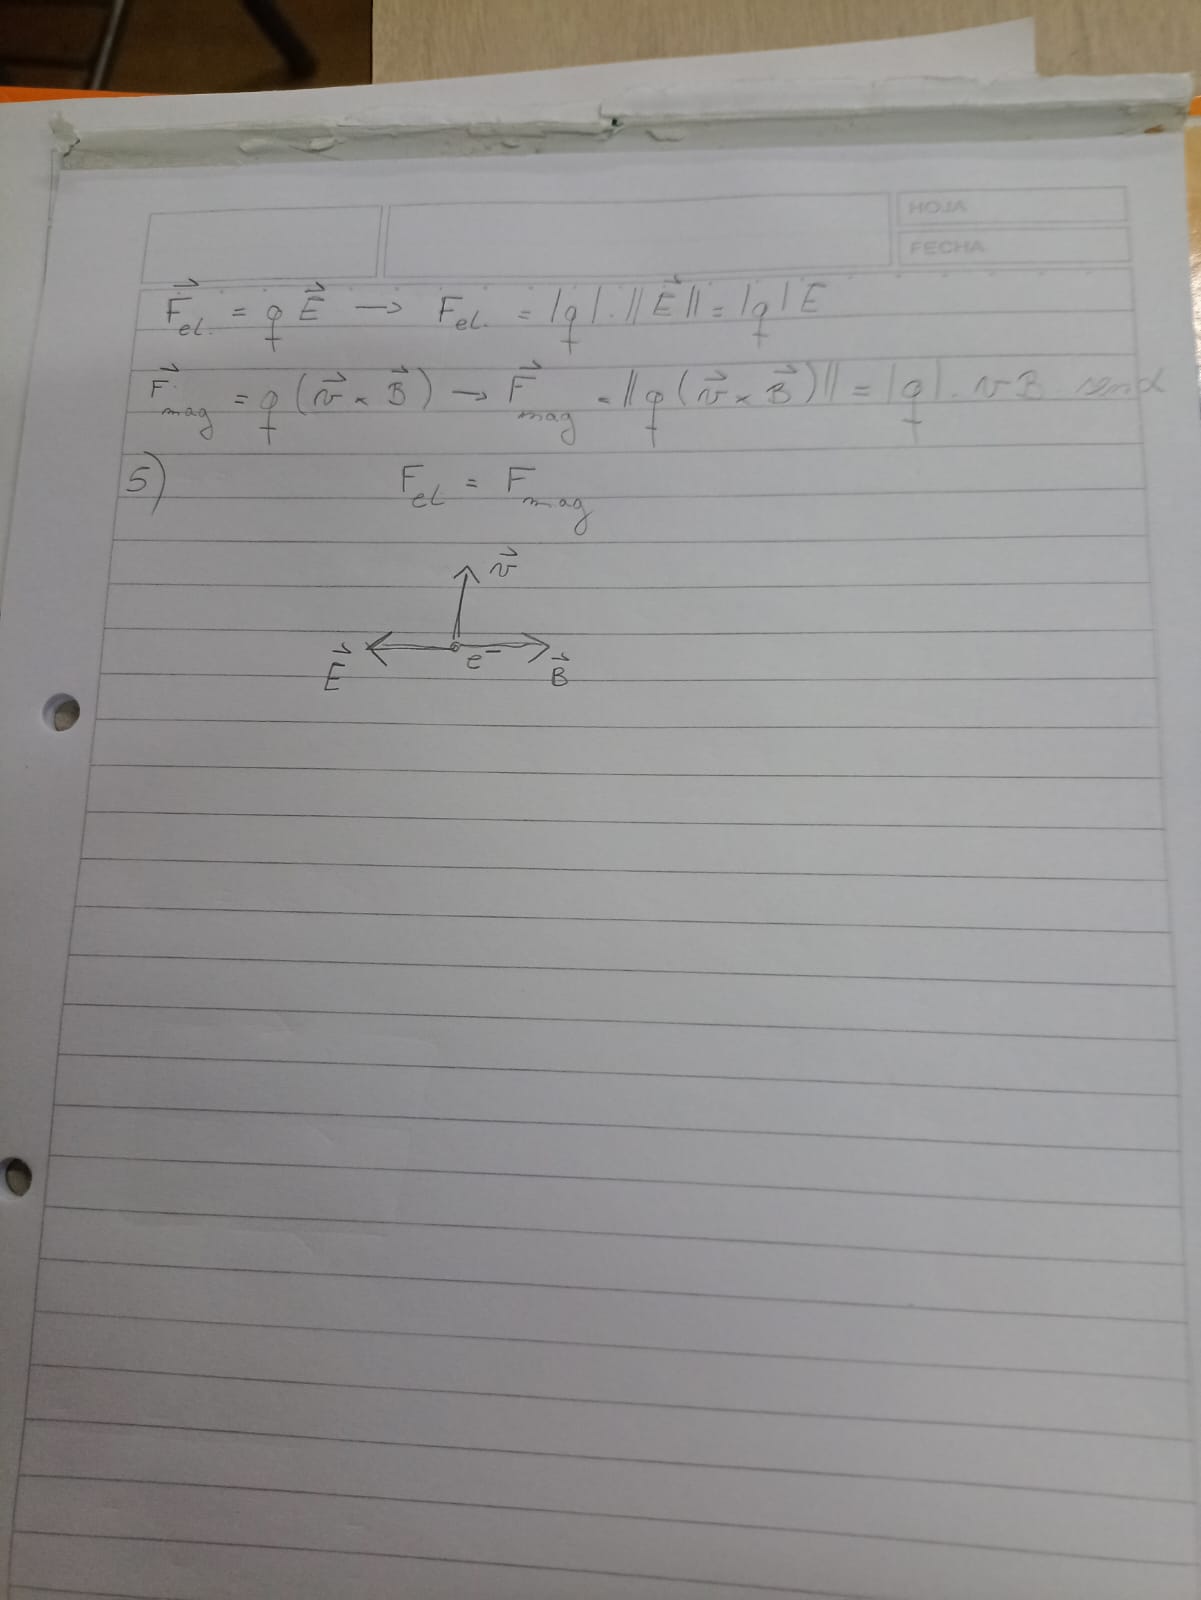 HOJA
FECHA
F⃗el. = q E⃗ → Fel. = |q|.||E⃗|| = |q| E
F⃗mag = q (v⃗ × B⃗) → F⃗mag = ||q (v⃗ × B⃗)|| = |q|. v B senα
5) Fel = Fmag
v⃗
E⃗ e⁻ B⃗